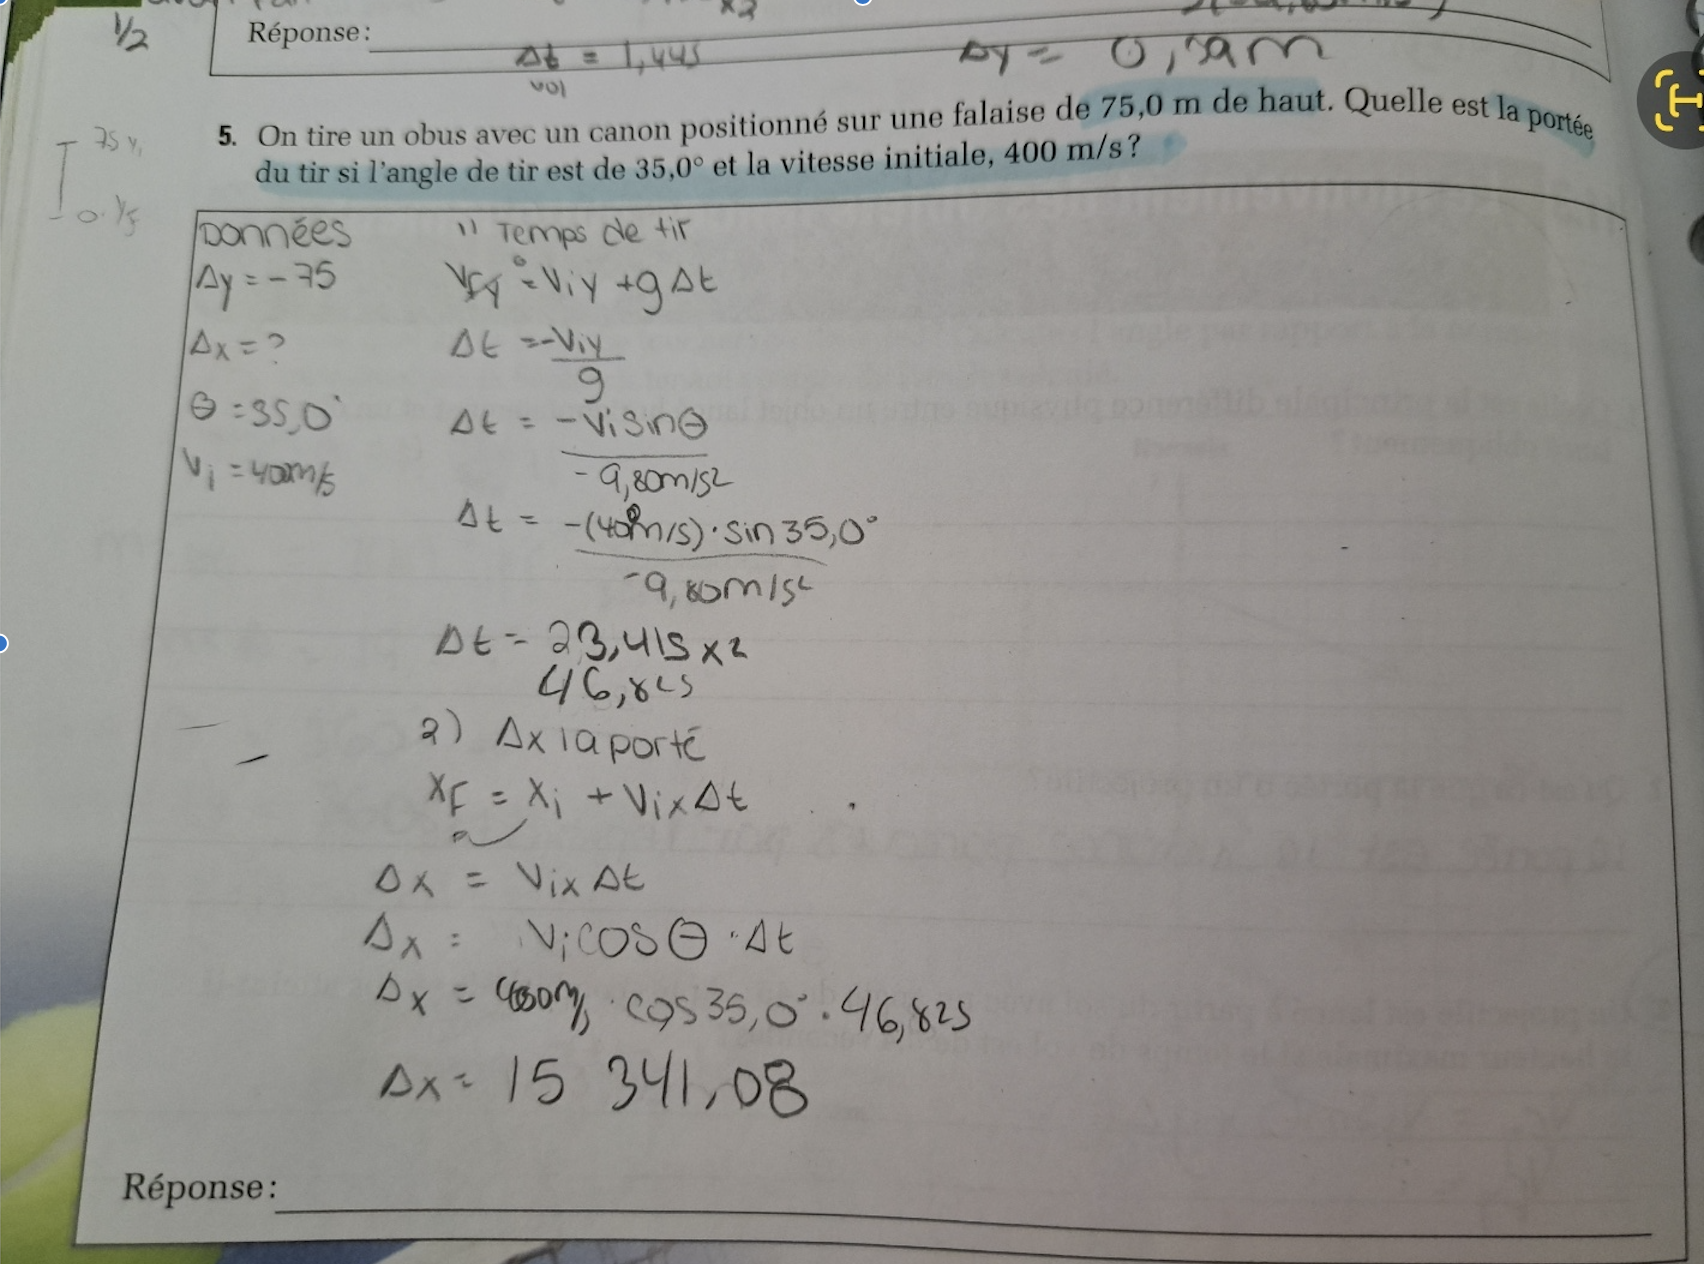 x2
1/2
Réponse:
Δt = 1,44s
vol
Δy =
75 yi
0. yf
5. On tire un obus avec un canon positionné sur une falaise de 75,0 m de haut. Quelle est la portée
du tir si l'angle de tir est de 35,0° et la vitesse initiale, 400 m/s?
Données
Δy = -75
Δx = ?
θ = 35,0°
Vi = 400m/s
1) Temps de tir
Vfy = Viy + gΔt
Δt = -Viy
g
Δt = -Visinθ
-9,80m/s2
Δt = -(400m/s)·sin 35,0°
-9,80m/s2
Δt = 23,41s x2
46,82s
2) Δx la porté
xF = xi + VixΔt
Δx = VixΔt
Δx = Vicosθ·Δt
Δx = 400m/s · cos35,0° · 46,82s
Δx = 15 341,08
Réponse: